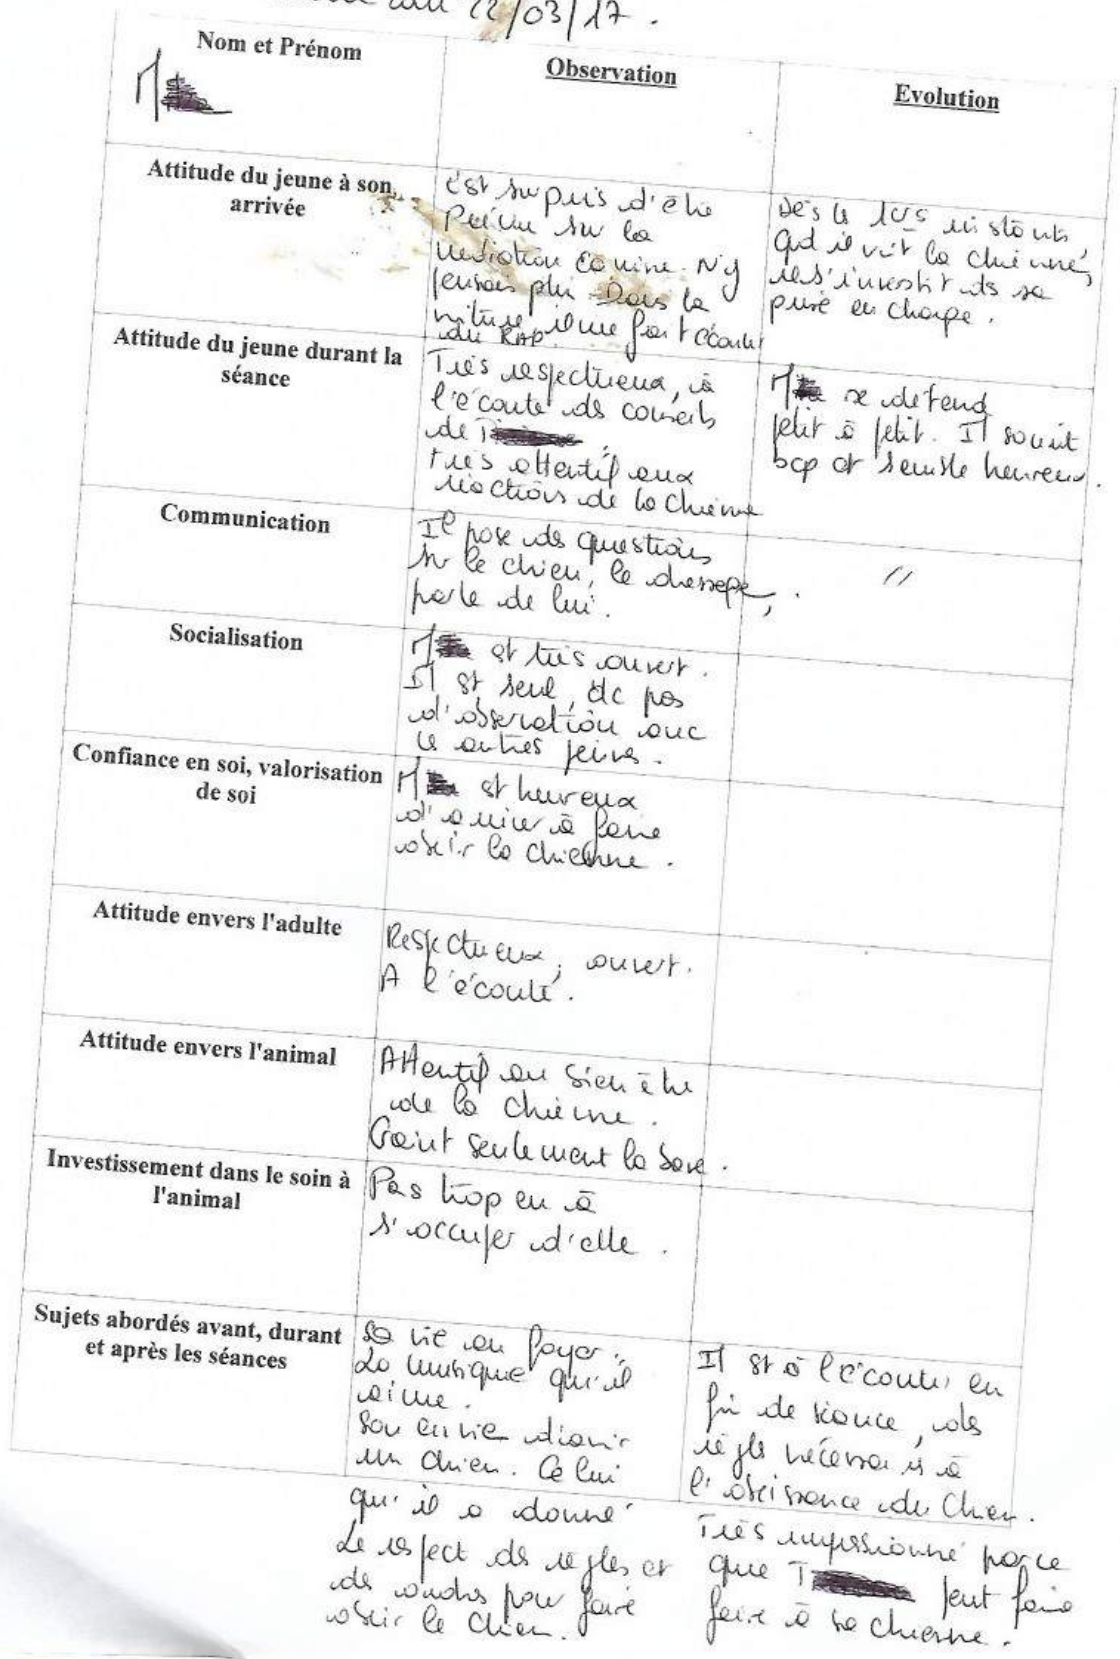 du 22/03/17.
Nom et Prénom
M
Observation
Evolution
Attitude du jeune à son
arrivée
est surpris d'être
prévu sur la
médiation équine. N'y
pensait plus. Dans la
voiture, il me fait écouter
du RAP.
Dès les 1ers instants,
qd il voit la chienne,
il s'investit ds sa
prise en charge.
Attitude du jeune durant la
séance
Très respectueux, à
l'écoute ds conseils
de T
très attentif aux
réactions de la chienne
M se détend
petit à petit. Il sourit
bcp et semble heureux.
Communication
Il pose ds questions
sr le chien, le dressage,
parle de lui.
//
Socialisation
M est très ouvert.
Il est seul, dc pas
d'observation avec
les autres jeunes.
Confiance en soi, valorisation
de soi
M est heureux
d'arriver à faire
obéir la chienne.
Attitude envers l'adulte
Respectueux, ouvert.
A l'écoute.
Attitude envers l'animal
Attentif au bien être
de la chienne.
Craint seulement la bave.
Investissement dans le soin à
l'animal
Pas trop eu à
s'occuper d'elle.
Sujets abordés avant, durant
et après les séances
Sa vie au foyer.
La musique qu'il
aime.
Son envie d'avoir
un chien. Celui
qu'il a donné
Le respect ds règles et
ds ordres pour faire
obéir le chien.
Il est à l'écoute, en
fin de séance, ds
règles nécessaires à
l'obéissance du chien.
Très impressionné parce
que T peut faire
faire à sa chienne.